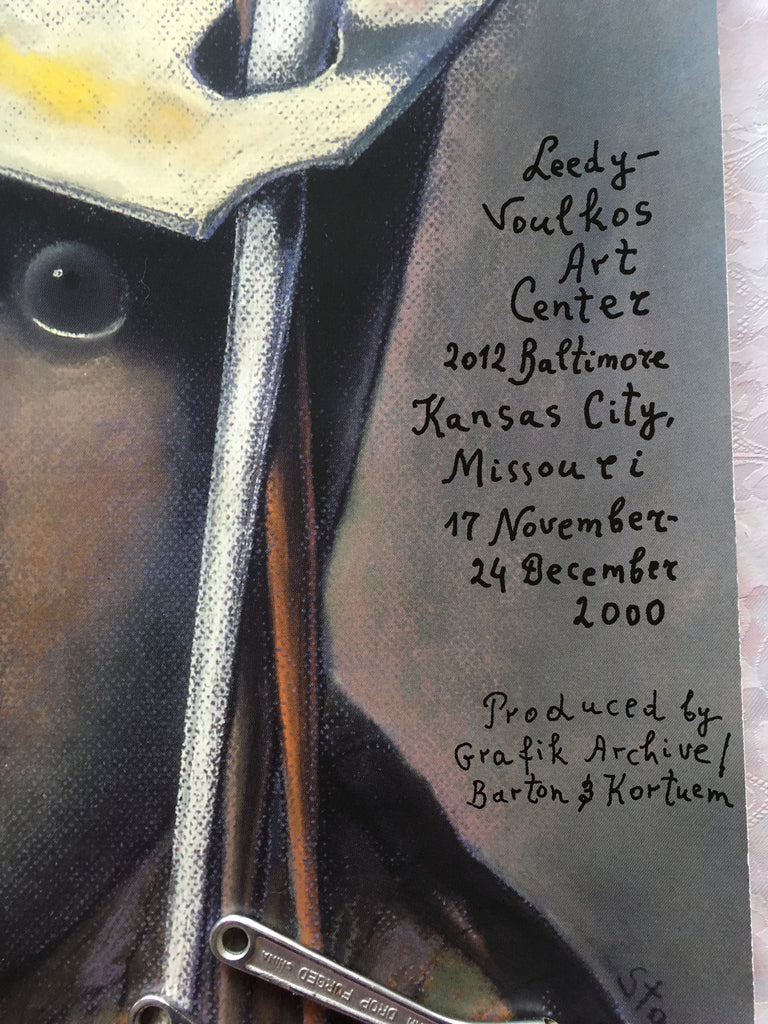 Leedy-
Voulkos
Art
Center
2012 Baltimore
Kansas City,
Missouri
17 November-
24 December
2000
Produced by
Grafik Archive/
Barton & Kortuem
DROP FORGED CHINA